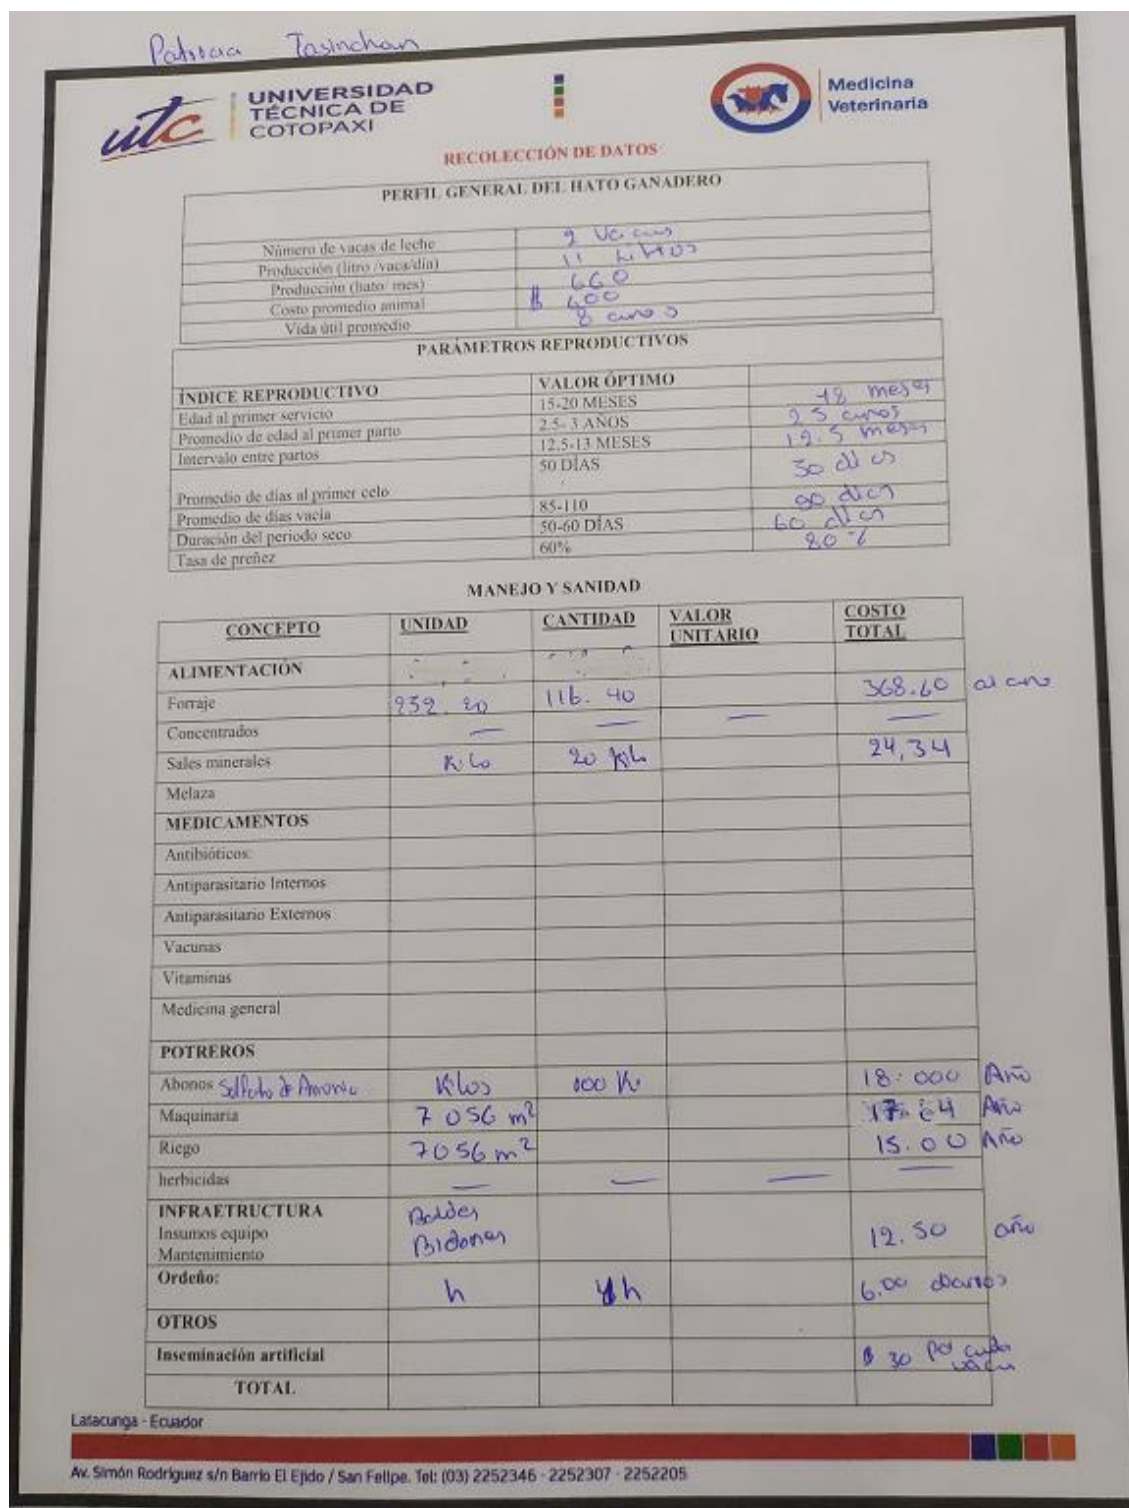 Patricia Tasinchan
utc UNIVERSIDAD TÉCNICA DE COTOPAXI
Medicina Veterinaria
RECOLECCIÓN DE DATOS
PERFIL GENERAL DEL HATO GANADERO
Número de vacas de leche 2 Vacas
Producción (litro /vaca/día) 11 Litros
Producción (hato/ mes) 660
Costo promedio animal $ 600
Vida útil promedio 8 años
PARÁMETROS REPRODUCTIVOS
ÍNDICE REPRODUCTIVO VALOR ÓPTIMO
Edad al primer servicio 15-20 MESES 18 meses
Promedio de edad al primer parto 2.5- 3 AÑOS 2.5 años
Intervalo entre partos 12,5-13 MESES 12.5 meses
Promedio de días al primer celo 50 DÍAS 30 dias
Promedio de días vacía 85-110 90 dias
Duración del periodo seco 50-60 DÍAS 60 dias
Tasa de preñez 60% 80 %
MANEJO Y SANIDAD
CONCEPTO UNIDAD CANTIDAD VALOR UNITARIO COSTO TOTAL
ALIMENTACIÓN
Forraje 252.20 116.40 368.60 al año
Concentrados — — — —
Sales minerales Kilo 20 Kilo 24,34
Melaza
MEDICAMENTOS
Antibióticos:
Antiparasitario Internos
Antiparasitario Externos
Vacunas
Vitaminas
Medicina general
POTREROS
Abonos Sulfato de Amonio Kilos 100 K 18.000 Año
Maquinaria 7056 m² 17.64 Año
Riego 7056 m² 15.00 Año
herbicidas — — — —
INFRAETRUCTURA Baldes
Insumos equipo Bidones 12.50 año
Mantenimiento
Ordeño: h 4h 6,00 diarios
OTROS
Inseminación artificial $ 30 por cada vaca
TOTAL
Latacunga - Ecuador
Av. Simón Rodríguez s/n Barrio El Ejido / San Felipe. Tel: (03) 2252346 - 2252307 - 2252205